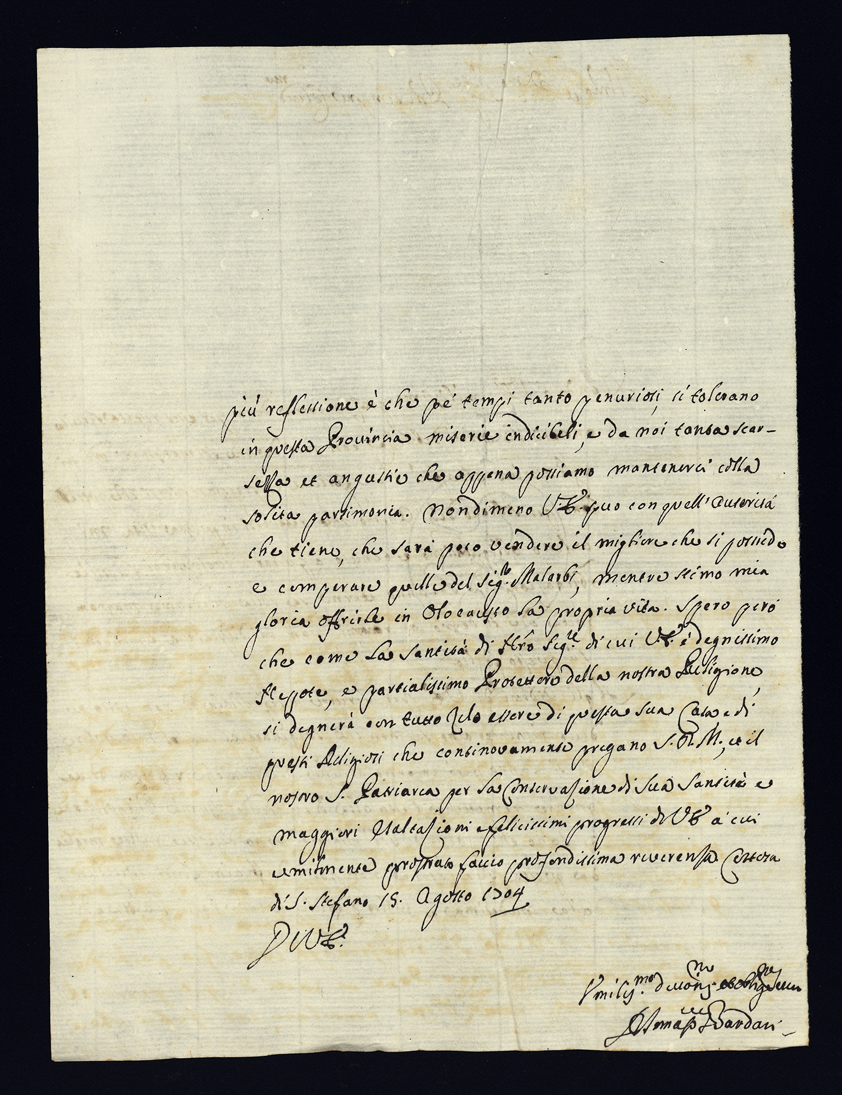 più reflessione è che pe' tempi tanto penuriosi, si tolerano
in questa Provincia miserie indicibili, e da noi tanta scar-
sezza et angustie che appena possiamo mantenerci colla
solita parsimonia. Nondimeno V. E. puo con quell' autorità
che tiene, che sarà poco vendere il migliore che si possiede
e comperare quelle del Sig.r Malerbi, mentre stimo mia
gloria offrirle in Olocausto la propria vita. Spero però
che come la Santità di Nro Sig.re di cui V. E. è degnissimo
Nepote, e partialissimo Protettore della nostra Religione,
si degnerà con tutto Zelo essere di questa sua Casa, e di
questi Religiosi che continovamente pregano S. D. M., et il
nostro S. Patriarca per la Conservazione di Sua Santità e
maggiori Esaltazioni e felicissimi progressi di V. E. a cui
umilmente prostrato faccio profondissima riverenza Certosa
di S. Stefano 15. Agosto 1704
Di V. E.
Umiliss.mo Devotiss.mo et Obligatiss.mo